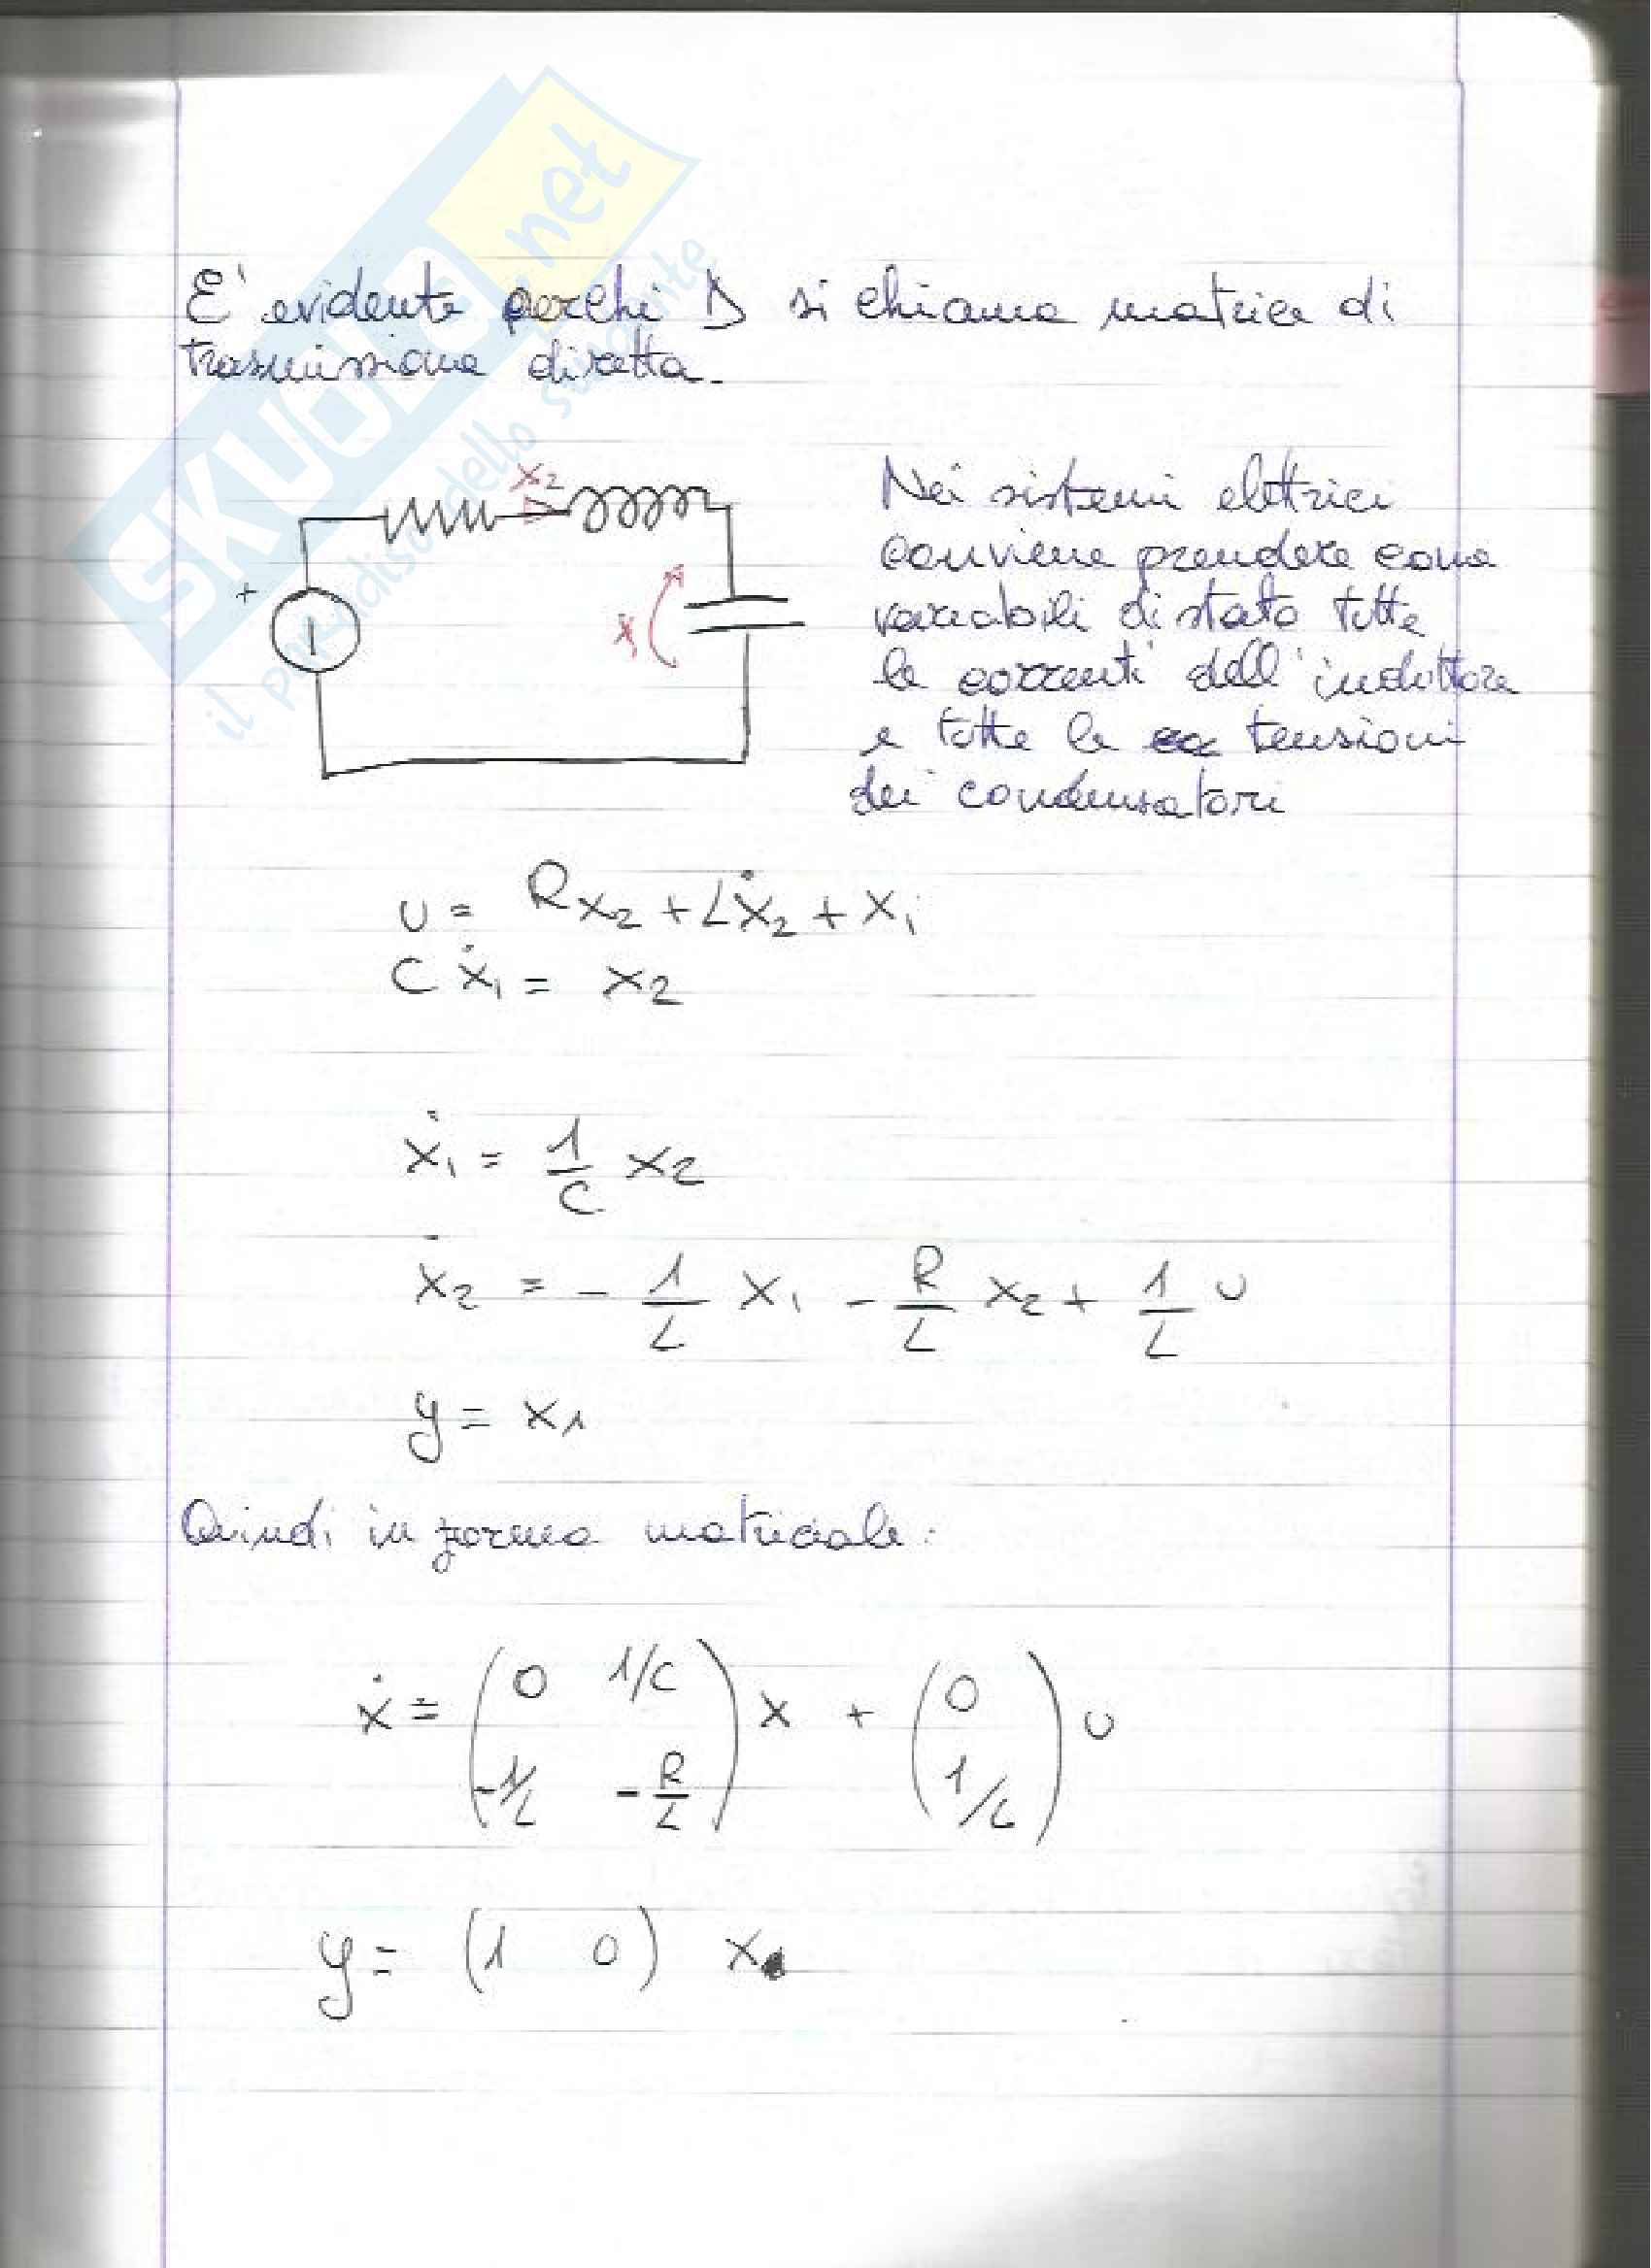 SKUOLA.net
il paradiso dello studente
E' evidente perchè D si chiama matrice di
trasmissione diretta.
x₂
+
x₁
Nei sistemi elettrici
conviene prendere come
variabili di stato tutte
le correnti dell'induttore
e tutte le tensioni
dei condensatori
u = Rx₂ + Lẋ₂ + x₁
C ẋ₁ = x₂
ẋ₁ = 1/C x₂
ẋ₂ = - 1/L x₁ - R/L x₂ + 1/L u
y = x₁
Quindi in forma matriciale:
ẋ = (0 1/C
-1/L -R/L) x + (0
1/L) u
y = (1 0) x